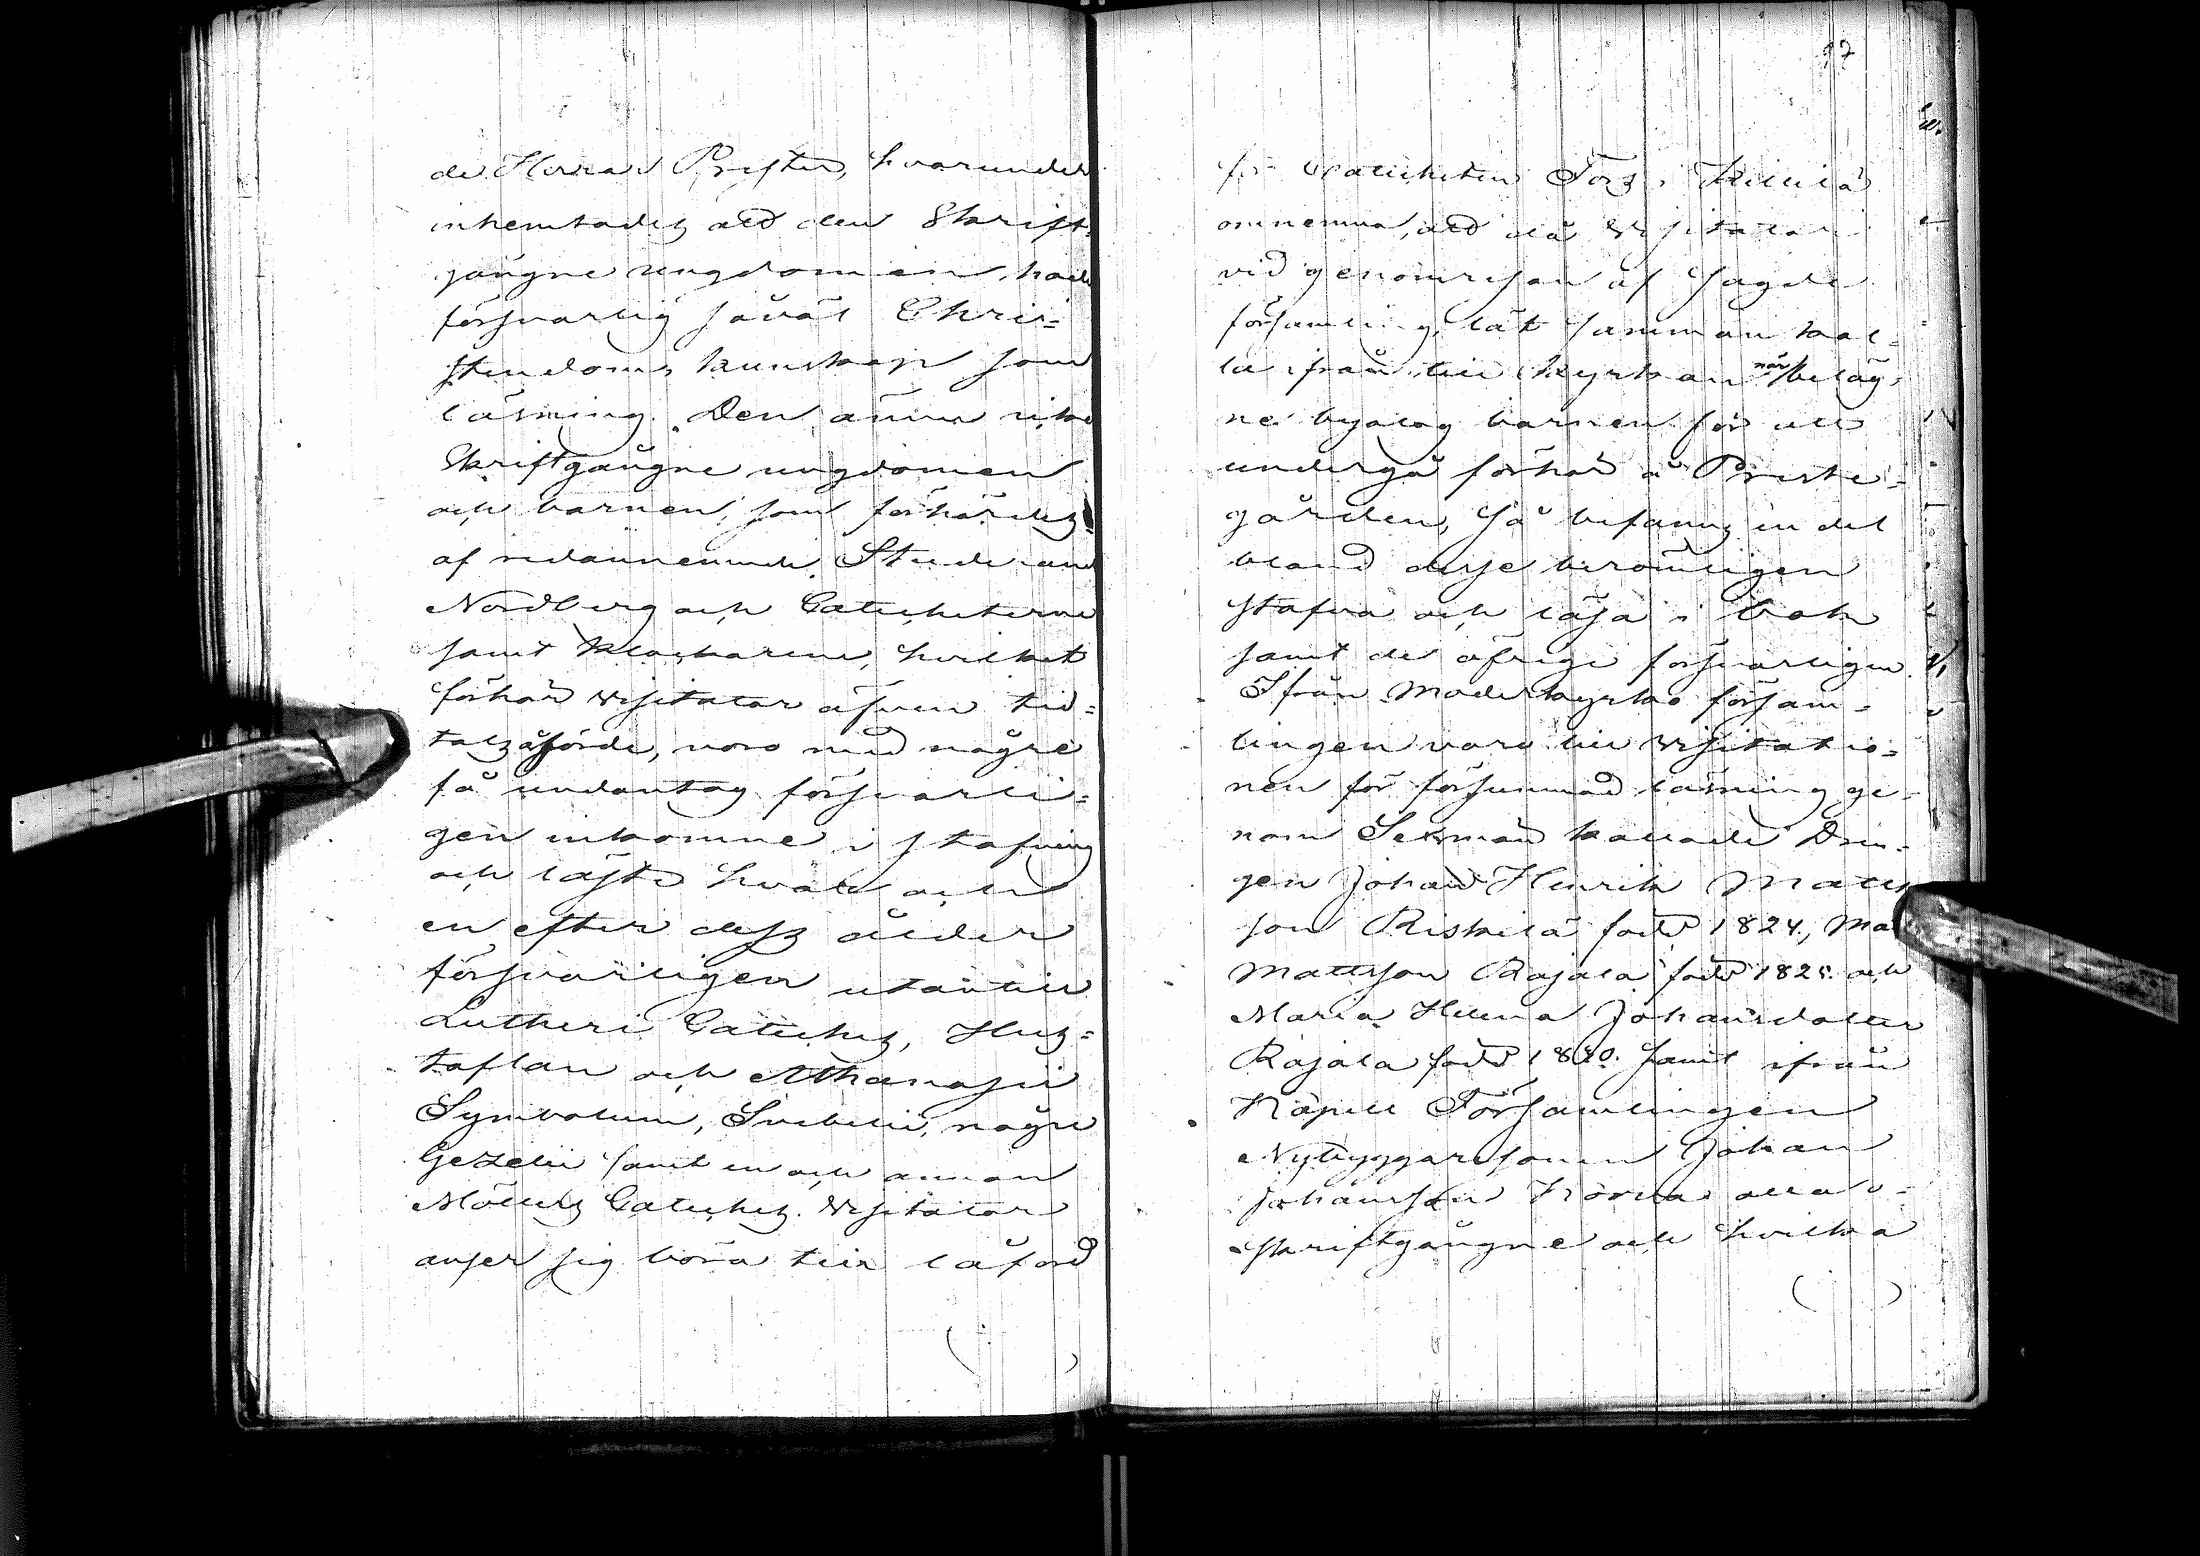 de Herrar Prester, hvarunder
inhemtades att den Skrift-
gångne ungdomen hade
försvarlig såväl Chris-
stendoms kunskap som
läsning. Den ännu icke
Skriftgångne ungdomen
och barnen, som förhördes
af redannemnde Studerand
Nordberg och Catecheterne
samt Klockarene, hvilket
förhör Visitator äfven tid-
tals åhörde, voro med någre
få undantag försvarli-
gen inkomne i stafning
och läste hvar och
en efter dess ålder
försvarligen utantill
Lutheri Cateches, Hus-
taflan och Athanasii
Symbolum, Svebelii, någre
Gezelii samt en och annan
Möllers Cateches. Visitator
anser sig böra till låford
97
för Catecheten Fors i
omnemna, att då Visitator
vid genomresan af sagde
församling, låt samman kal-
la ifrån till kyrkan när beläg-
ne byalag barnen för att
undergå förhör å Preste-
gården, så befanns en del
bland desse berömligen
stafva och läsa i bok
samt de öfrige försvarligen
Ifrån Moderkyrko försam-
lingen voro till Visitatio-
nen för försummad läsning ge-
nom Sexmän kallade Drän-
gen Johan Henrik Matts
son Riskilä född 1824, Mat
Mattsson Rajala född 1825 och
Maria Helena Johansdotter
Rajala född 1820. samt ifrån
Kapell Församlingen
Nybyggaresonen Johan
Johansson alla o-
skriftgångne och hvilka